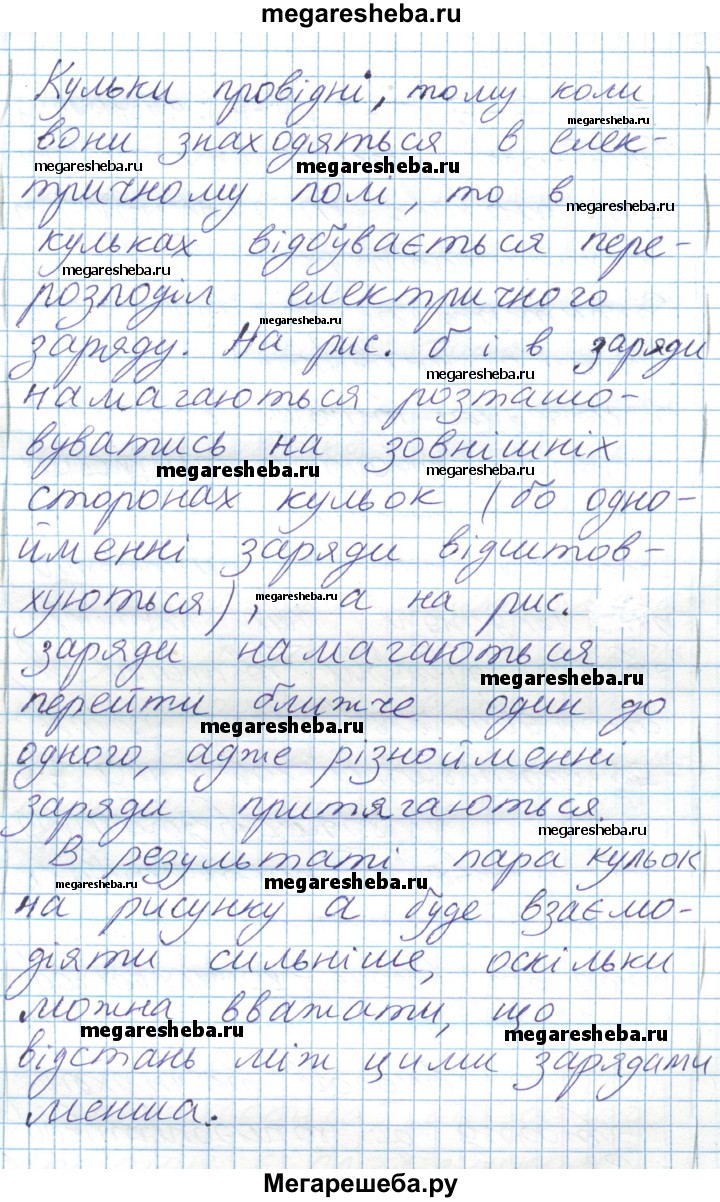 megaresheba.ru
Кульки провідні, тому коли
megaresheba.ru
вони знаходяться в елек-
megaresheba.ru megaresheba.ru
тричному полі, то в
megaresheba.ru
кульках відбувається пере-
megaresheba.ru
розподіл електричного
megaresheba.ru
заряду. На рис. б і в заряди
megaresheba.ru
намагаються розташо-
вуватись на зовнішніх
megaresheba.ru megaresheba.ru
сторонах кульок (бо одно-
йменні заряди відштов-
хуються), а на рис.
megaresheba.ru
заряди намагаються
megaresheba.ru
перейти ближче один до
megaresheba.ru
одного, адже різнойменні
заряди притягаються.
megaresheba.ru
В результаті пара кульок
megaresheba.ru megaresheba.ru
на рисунку а буде взаємо-
діяти сильніше, оскільки
можна вважати, що
megaresheba.ru megaresheba.ru
відстань між цими зарядами
менша.
Мегарешеба.ру